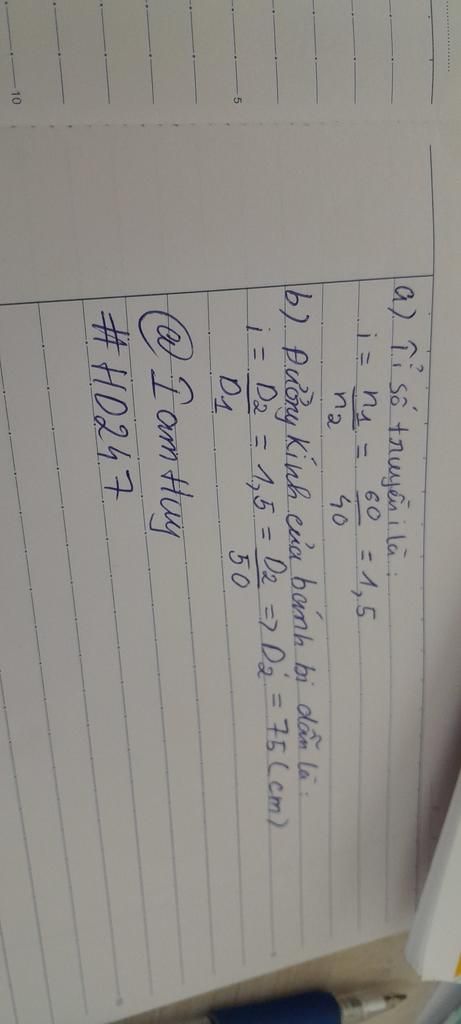 a) Tỉ số truyền i là:
i = n1/n2 = 60/40 = 1,5
b) Đường kính của bánh bị dẫn là:
i = D2/D1 = 1,5 = D2/50 => D2 = 75 (cm)
@ I am Huy
# HD247
5
10